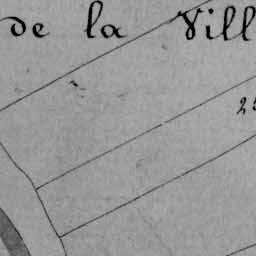 de la Vill